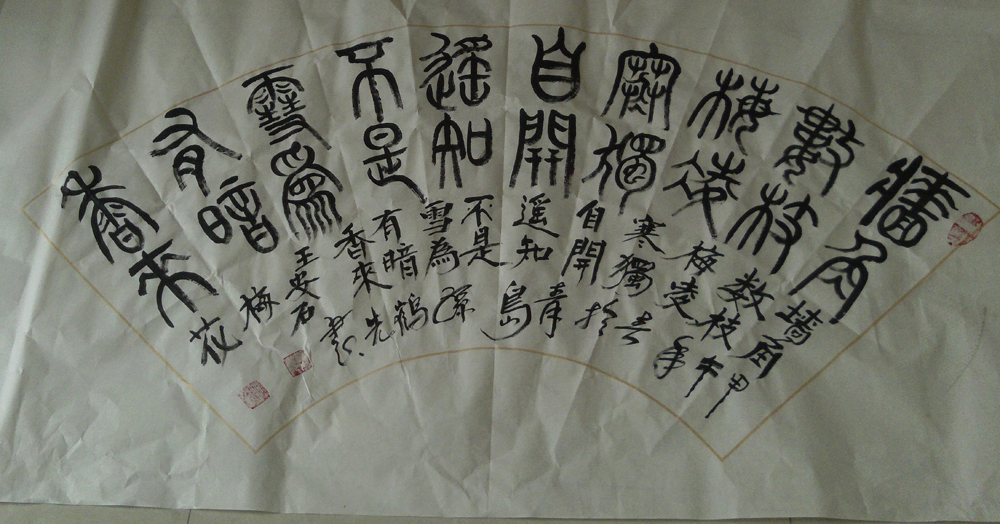 牆角
數枝
梅凌
寒獨
自開
遥知
不是
雪為
有暗
香来
墙角
数枝
梅凌
寒獨
自開
遥知
不是
雪為
有暗
香來
王安石
梅花
甲午年
於青島
鶴先